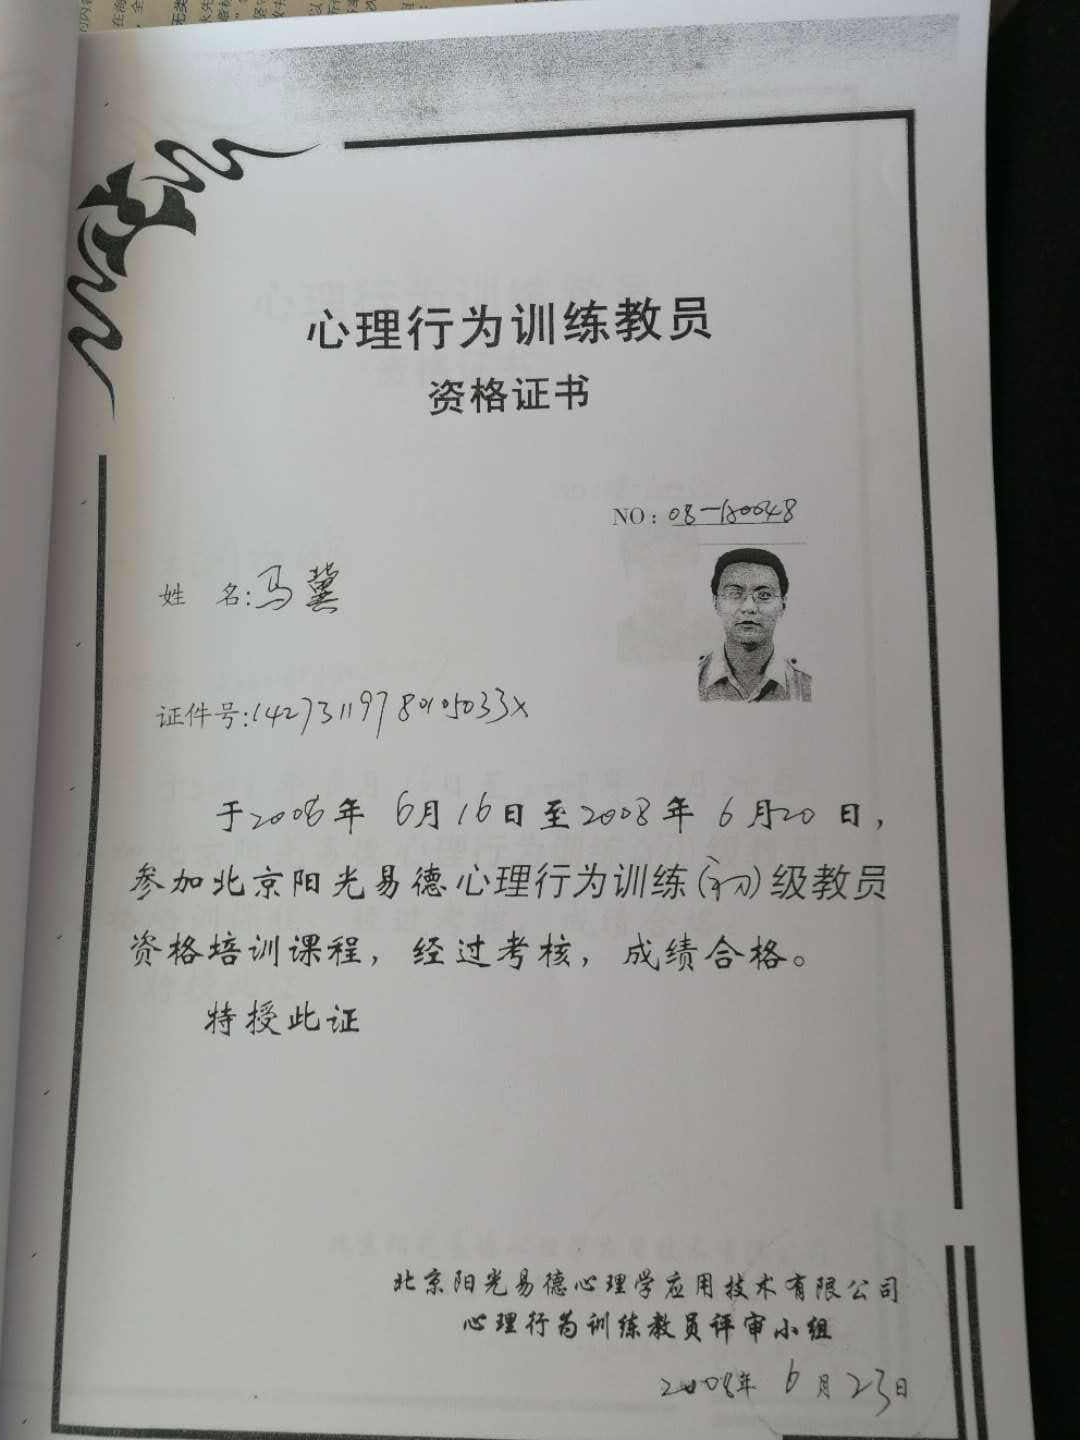 心理行为训练教员
资格证书
NO：08-1A0048
姓 名:马冀
证件号:14273119780105033X
于2008年 6月16日至2008年 6月20日，
参加北京阳光易德心理行为训练(初)级教员
资格培训课程，经过考核，成绩合格。
特授此证
北京阳光易德心理学应用技术有限公司
心理行为训练教员评审小组
2008年 6月23日